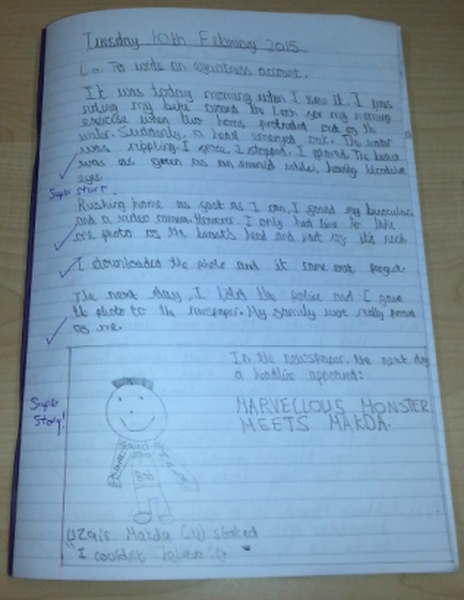 Tuesday 10th February 2015
L.o. To write an eyewitness account.
It was today morning when I saw it. I was
riding my bike around the Loch for my morning
exercise when two horns protruded out of the
water. Suddenly, a head emerged out. The water
was rippling. I froze. I stopped. I The beast
was as green as an emerald while, having bloodshot
eyes.
Super start.
Rushing home as fast as I can, I found my binoculars
and a video camera. However, I only had time to take
one photo of the beast's head and part of it's neck
I downloaded the photo and it came out perfect
The next day, I told the police and I gave
the photo to the newspaper. My family were really proud
of me.
In the newspaper, the next day
a headline appeared:
Super
Story!
MARVELLOUS MONSTER
MEETS MAKDA.
Uzair Makda stated
"I couldn't believe it